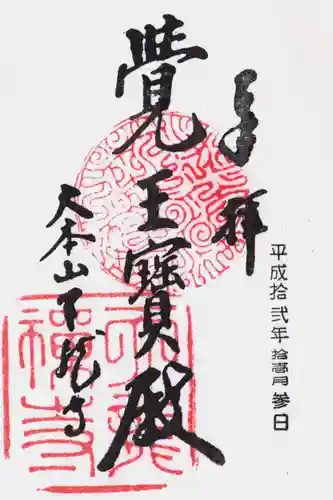 奉拝
覺王寶殿
大本山天龍寺
平成拾弐年拾壹月参日